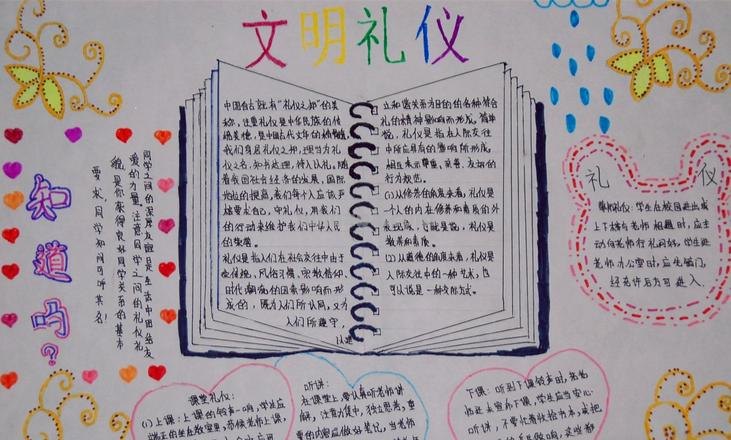 文明礼仪
中国自古就有“礼仪之邦”的美
称，注重礼仪是中华民族的传
统美德，是中国古代文明的精髓
我们身居礼仪之邦，理当为礼
仪之名，知书达理，待人以礼，随
着我国社会经济的发展，国际
地位的提高，我们每个人应该严
格要求自己，守礼仪，用我们
的行动来维护我们中华人民
的尊严。
礼仪是指人们在社会交往中由于
受传统，风俗习惯，宗教信仰
时代潮流的因素影响而形
成的，既为人们所认同，又为
人们所遵守，
以建
立和谐关系为目的的各种符合
礼的精神影响而形成，简单
说，礼仪是指在人际交往
中所应具有的影响所形成
相互表示尊重，亲善，友好的
行为规范。
(1)从修养的角度来看，礼仪是
一个人的内在修养和素质的外
表现，也就是说，礼仪是
教养和素质。
(2)从道德的角度来看，礼仪是
人际交往中的一种艺术，也
可以说是一种交际方式。
知道吗？
同学之间的深厚友谊是生活中团结友
爱的力量。注意同学之间的礼仪礼
貌是你获得良好同学关系的基本
要求，同学知间可听其名！
礼仪
集队礼仪：学生在校园进出或
上下楼与老师相遇时，应主
动向老师行礼问好，学生进
老师办公室时，应先敲门，
经允许后方可进入.
课堂礼仪：
(1)上课：上课的铃声一响，学生应
端正的坐在教室里，恭候老师上课，
听讲：
在课堂上，要认真听老师讲
解，注意力集中，独立思考，重
要的内容应做好笔记，当老师
下课：听到下课铃声时，若老
师还未宣布下课，学生应当安心
听讲，不要忙着收拾书本，或把